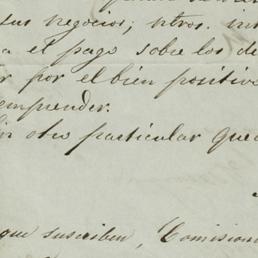 sus negocios; ntros. int
a el pago sobre los de
r por el bien positiv
emprender.
in otro particular que
que suscriben, Comision